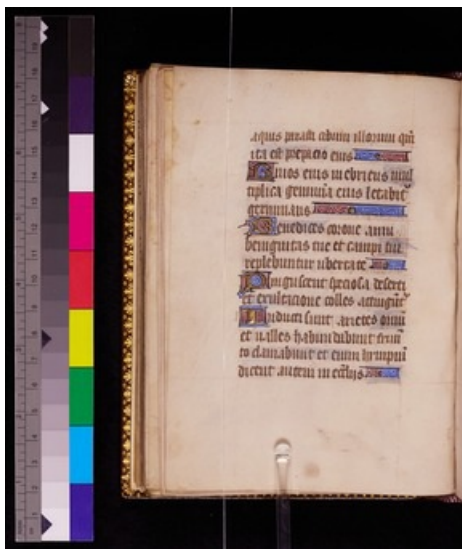 aquis parasti cibum illorum qm̄
ita est prepacio eius
Riuos eius inebrians mul
tiplica genimina eius letabit᷑
germinans
Benedices corone anni
benignitas tue et campi tui
replebuntur ubertate
Pinguescent speciosa deserti
et exultacione colles accingent᷑
Induti sunt arietes ouiū
et ualles habundabunt frum̄
to clamabunt et enim hympnū
dicent